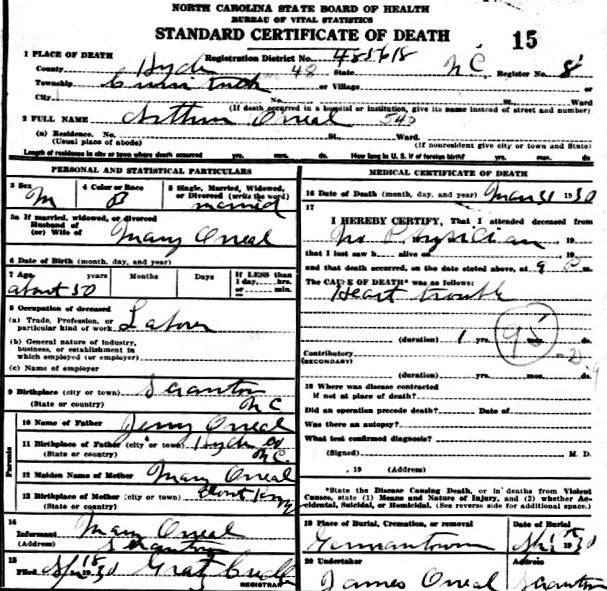 NORTH CAROLINA STATE BOARD OF HEALTH
BUREAU OF VITAL STATISTICS
STANDARD CERTIFICATE OF DEATH
15
1 PLACE OF DEATH
Registration District No. 485618
County Hyde 48 State N C. Register No. 8
Township or Village or
City No. St. Ward
(If death occurred in a hospital or institution, give its name instead of street and number)
2 FULL NAME Arthur Oneal 540
(a) Residence. No. St. Ward.
(Usual place of abode) (If nonresident give city or town and State)
Length of residence in city or town where death occurred yrs. mos. ds. How long in U. S. if of foreign birth? yrs. mos. ds.
PERSONAL AND STATISTICAL PARTICULARS
3 Sex 4 Color or Race 5 Single, Married, Widowed,
or Divorced (write the word)
M B married
5a If married, widowed, or divorced
Husband of
(or) Wife of Mary Oneal
6 Date of Birth (month, day, and year)
7 Age years Months Days If LESS than
1 day, hrs.
or min.
about 50
8 Occupation of deceased
(a) Trade, Profession, or
particular kind of work Labor
(b) General nature of industry,
business, or establishment in
which employed (or employer)
(c) Name of employer
9 Birthplace (city or town) Scranton
(State or country) N C
Parents
10 Name of Father Jerry Oneal
11 Birthplace of Father (city or town) Hyde Co
(State or country) N.C.
12 Maiden Name of Mother Mary Oneal
13 Birthplace of Mother (city or town) dont know
(State or country)
14
Informant Mary Oneal
(Address) Scranton
15
Filed 30
REGISTRAR
MEDICAL CERTIFICATE OF DEATH
16 Date of Death (month, day, and year) Mar 31 1930
17
I HEREBY CERTIFY, That I attended deceased from
No Physician, 19
that I last saw h alive on, 19
and that death occurred, on the date stated above, at 9 m.
The CAUSE OF DEATH* was as follows:
Heart trouble
95
(duration) 1 yrs. mos. ds.
Contributory
(SECONDARY)
(duration) yrs. mos. ds.
18 Where was disease contracted
if not at place of death?
Did an operation precede death? Date of
Was there an autopsy?
What test confirmed diagnosis?
(Signed) M. D.
, 19 (Address)
*State the Disease Causing Death, or in deaths from Violent
Causes, state (1) Means and Nature of Injury, and (2) whether Ac-
cidental, Suicidal, or Homicidal. (See reverse side for additional space).
19 Place of Burial, Cremation, or removal Date of Burial
Germantown 1930
20 Undertaker Address
James Oneal Scranton